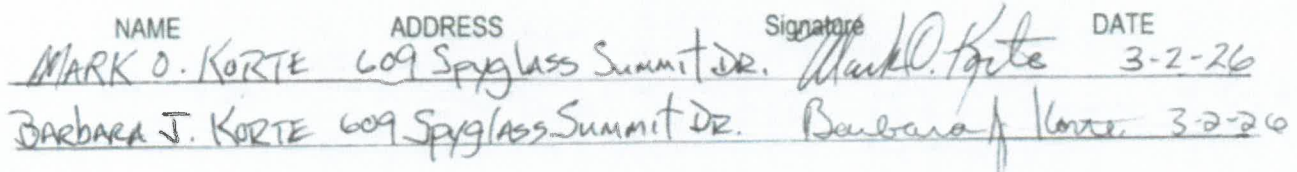 NAME ADDRESS Signature DATE
MARK O. KORTE 609 Spyglass Summit DR. Mark O. Korte 3-2-26
BARBARA J. KORTE 609 Spyglass Summit DR. Barbara J Korte 3-2-26